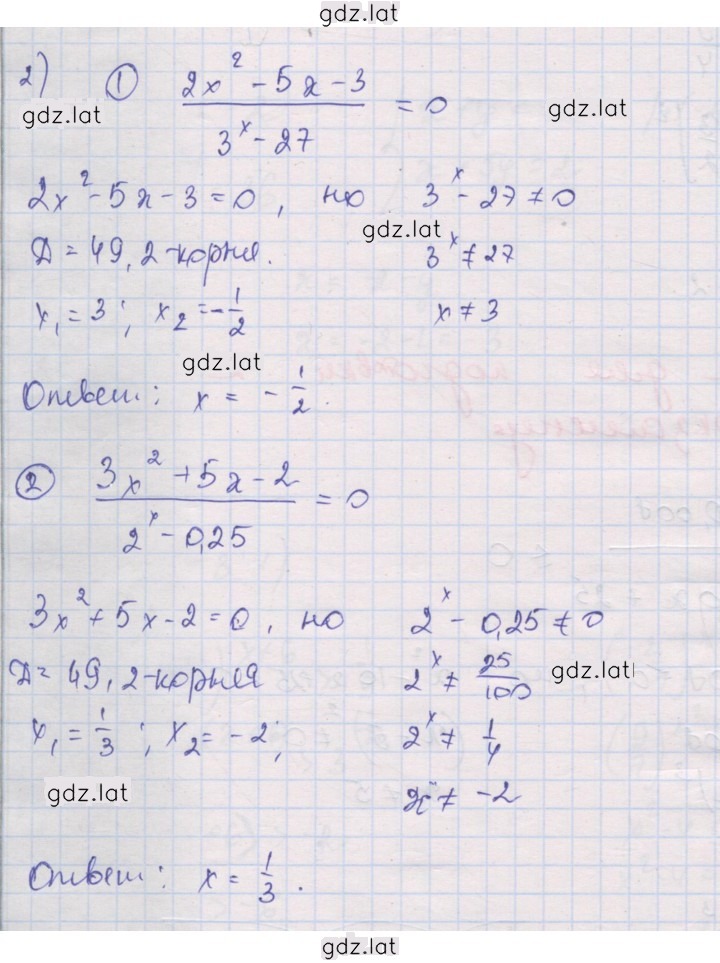 gdz.lat
2) ① (2x² - 5x - 3) / (3ˣ - 27) = 0
gdz.lat gdz.lat
2x² - 5x - 3 = 0, но 3ˣ - 27 ≠ 0
gdz.lat
D = 49, 2-корня. 3ˣ ≠ 27
x₁ = 3; x₂ = -1/2 x ≠ 3
gdz.lat
Ответ: x = -1/2.
② (3x² + 5x - 2) / (2ˣ - 0,25) = 0
3x² + 5x - 2 = 0, но 2ˣ - 0,25 ≠ 0
D = 49, 2-корня 2ˣ ≠ 25/100 gdz.lat
x₁ = 1/3; x₂ = -2; 2ˣ ≠ 1/4
gdz.lat x ≠ -2
Ответ: x = 1/3.
gdz.lat